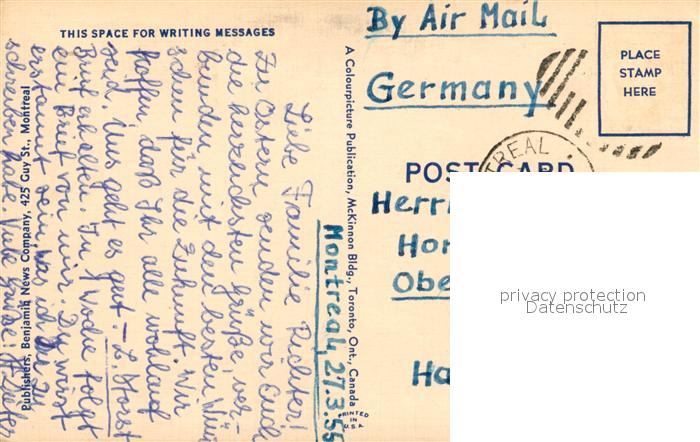 THIS SPACE FOR WRITING MESSAGES
Montreal, 27.3.55
Liebe Familie Richter!
Zu Ostern senden wir Euch
die herzlichsten Grüße, ver-
bunden mit den besten Wün
schen für die Zukunft. Wir
hoffen, daß Ihr alle wohlauf
seid. Uns geht es gut. - L. Horst
Brief erhalten. In 1 Woche folgt
ein Brief von mir. Du wirst
erstaunt sein, was ich Dir zu
schreiben habe. Viele Grüße!
Publishers, Benjamin News Company, 425 Guy St., Montreal
A Colourpicture Publication, McKinnon Bldg., Toronto, Ont., Canada
PRINTED
IN
U.S.A.
By Air Mail
Germany
PLACE
STAMP
HERE
REAL
POST CARD
Herr
Hor
Obe
Ha
privacy protection
Datenschutz